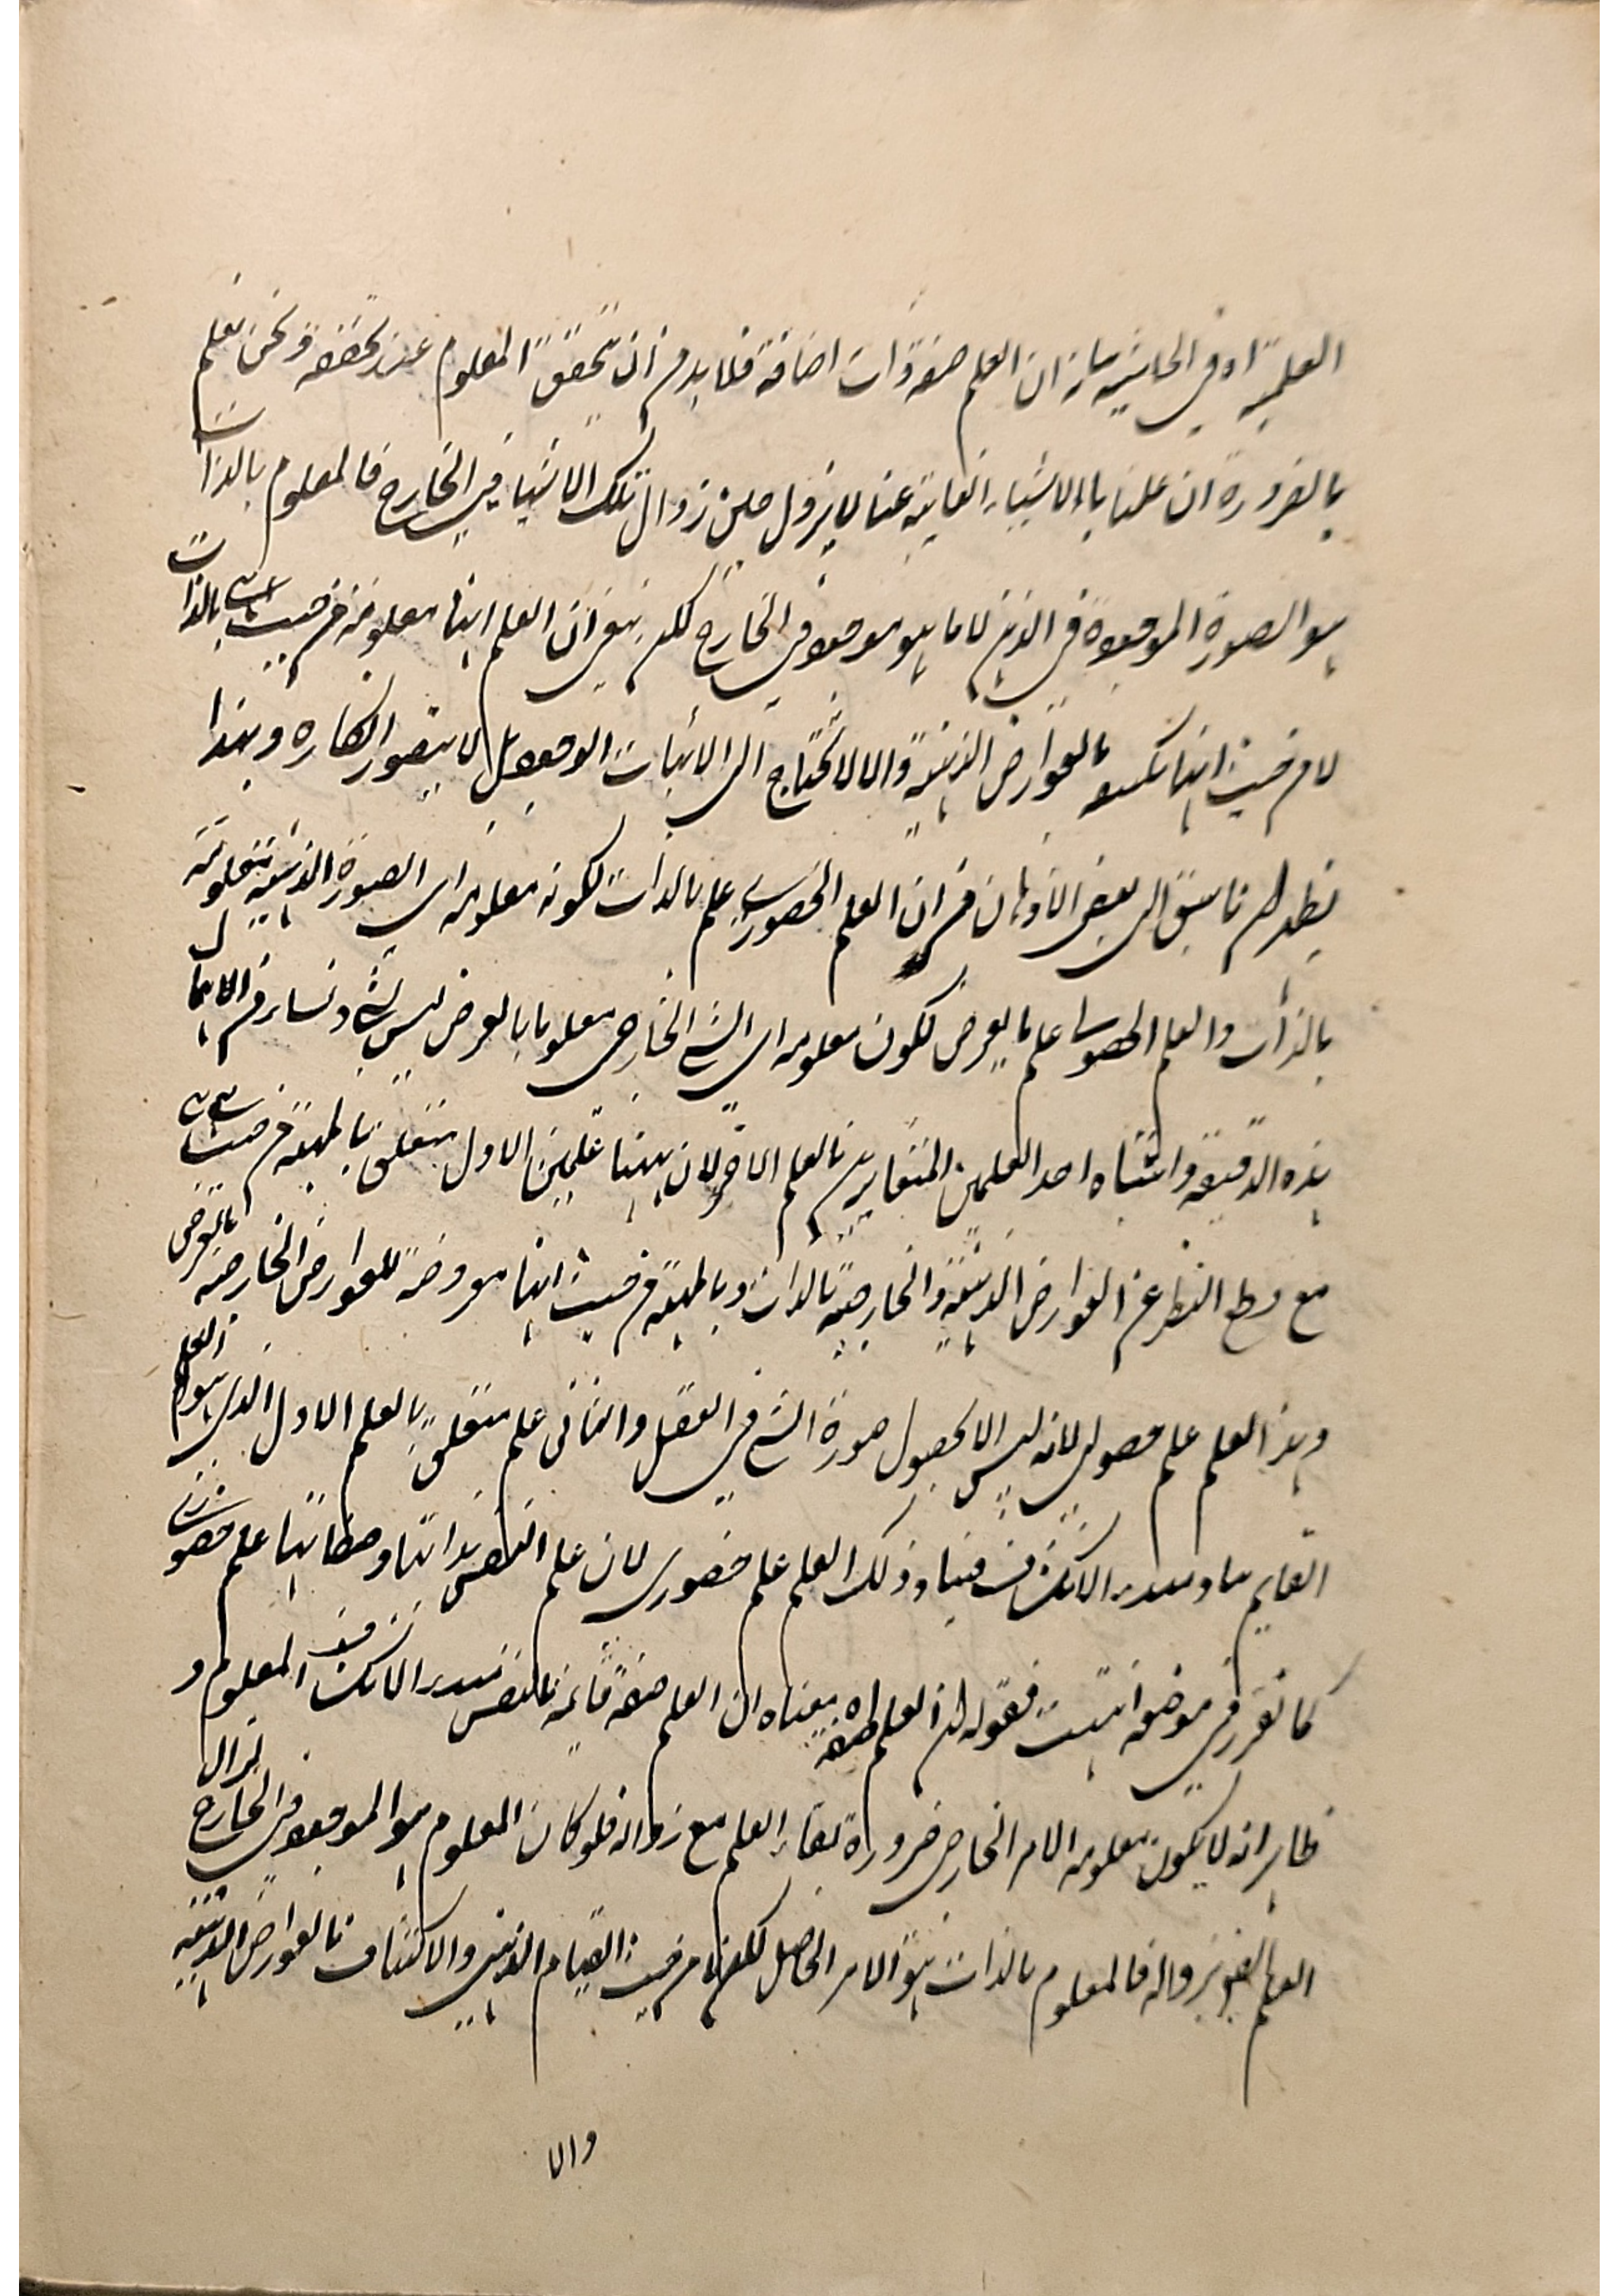 العلمية اه فى الحاشية بيانه ان العلم صفة ذات اضافة فلا بد من ان يتحقق المعلوم عند تحققه ونحن نعلم
بالضرورة ان علمنا بالاشياء الغايبة عنا لا يزول حين زوال تلك الاشياء فى الخارج فالمعلوم بالذات
هو الصورة الموجودة فى الذهن لا ما هو موجود فى الخارج لكن بقى ان العلم انها معلومة من حيث هى هى بالذات
لا من حيث انها مكتنفة بالعوارض الذهنية والا لا تحتاج الى الاثبات الوجود بل لا يتصور انكاره وبهذا
يظهر ان ما سبق الى بعض الاذهان من ان العلم الحضورى علم بالذات لكونه معلومه اى الصورة الذهنية معلومة
بالذات والعلم الحصولى علم بالعرض لكون معلومه اى الشئ الخارجى معلوما بالعرض ليس بشئ ونشاء من اهمال
هذه الدقيقة واشتباه احد العلمين المتغايرين بالعلم الآخر لان ههنا علمين الاول متعلق بالمهية من حيث هى هى
مع قطع النظر عن العوارض الذهنية والخارجية بالذات وبالمهية من حيث انها معروضة للعوارض الخارجية بالعرض
وهذا العلم علم حصولى لانه ليس الا بحصول صورة الشئ فى العقل والثانى علم متعلق بالعلم الاول الذى هو العلم
القايم بها ومبدء الانكشاف فيها وذلك العلم علم حضورى لان علم النفس بذاتها وصفاتها علم حضورى
كما تقرر فى موضعه انتهت فقوله ان العلم صفة اه معناه ان العلم صفة قايمة بالنفس مبدء الانكشاف المعلوم و
ظاهر انه لا يكون معلومه الامر الخارجى ضرورة بقاء العلم مع زواله فلو كان المعلوم هو الموجود فى الخارج لزال
العلم بزواله فالمعلوم بالذات هو الامر الحاصل لكن لا من حيث القيام الذهنى والاكتناف بالعوارض الذهنية
والا